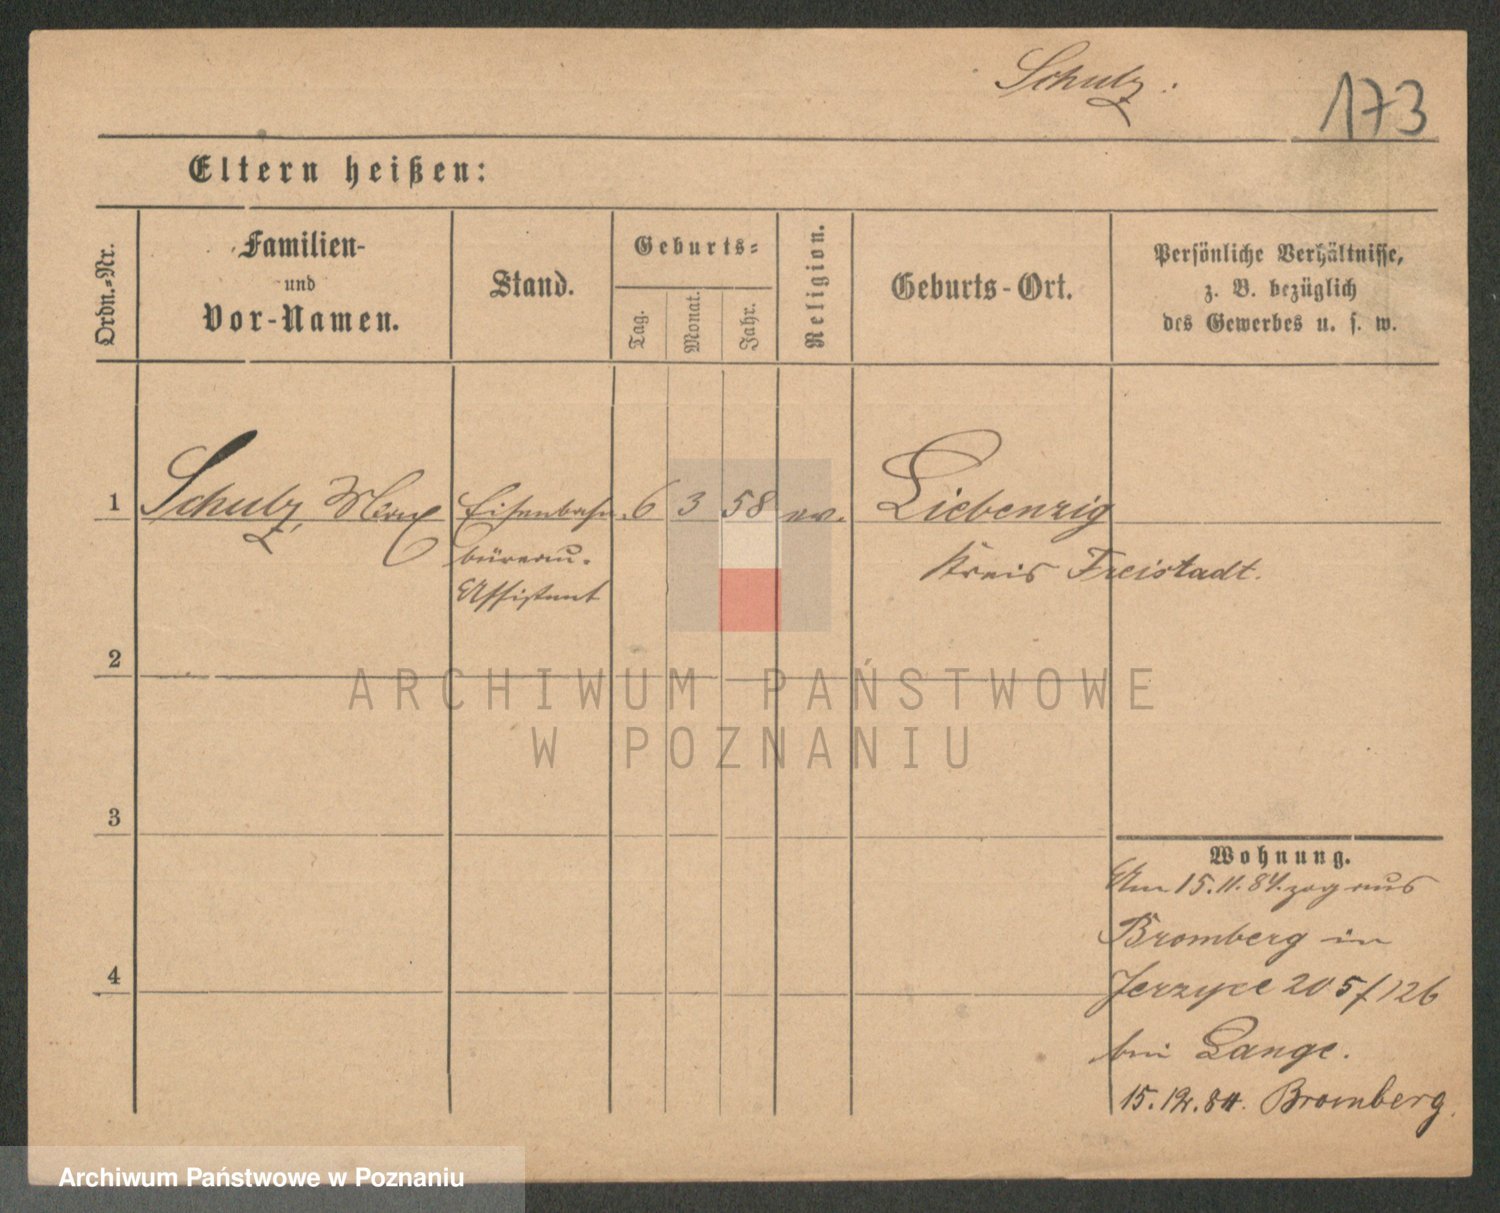 Schulz.
173
Eltern heißen:
Ordn.-Nr.
Familien-
und
Vor-Namen.
Stand.
Geburts-
Tag.
Monat.
Jahr.
Religion.
Geburts-Ort.
Persönliche Verhältnisse,
z. B. bezüglich
des Gewerbes u. s. w.
1 Schulz, Max Eisenbahn- 6 3 58 ev. Liebenzig
büreau-
Assistent
Kreis Freistadt.
2
ARCHIWUM PAŃSTWOWE
W POZNANIU
3
Wohnung.
Am 15.11.84. zog aus
Bromberg in
4
Jerzyce 205/126
bei Lange.
15.12.84. Bromberg.
Archiwum Państwowe w Poznaniu